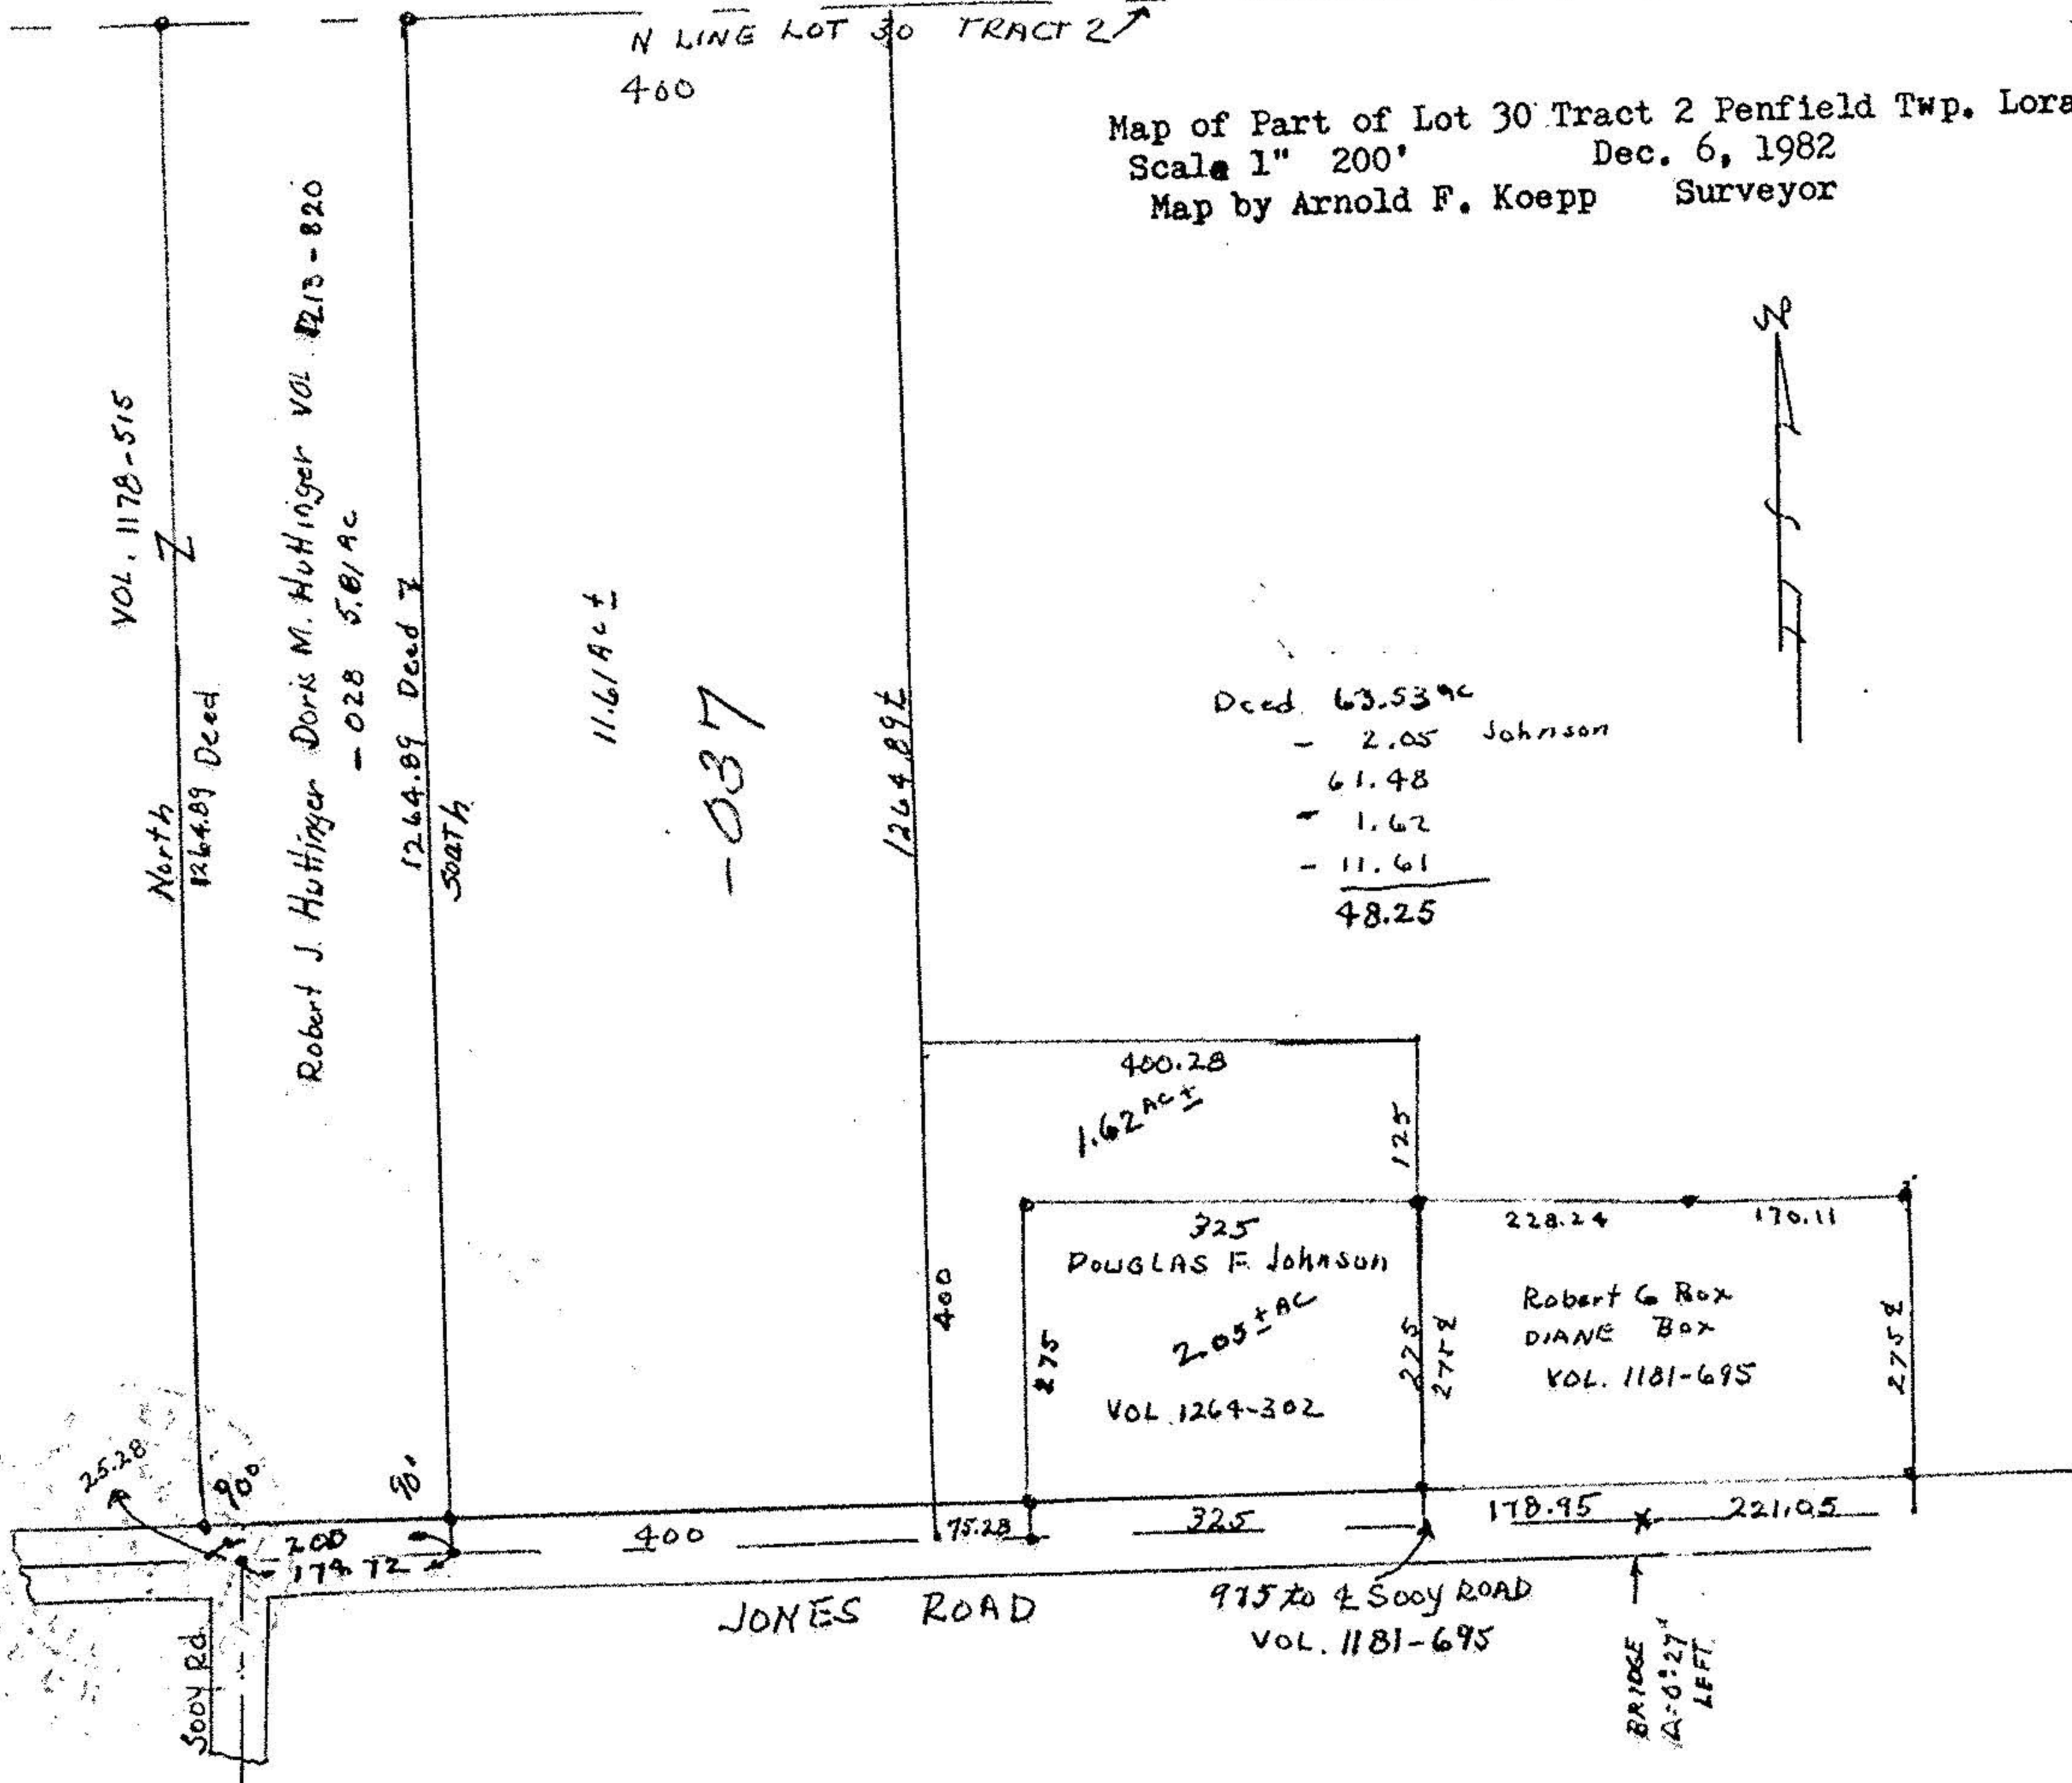 N LINE LOT 30 TRACT 2
400
Map of Part of Lot 30 Tract 2 Penfield Twp. Lora
Scale 1" 200' Dec. 6, 1982
Map by Arnold F. Koepp Surveyor
VOL. 1178-515
North
1264.89 Deed
Robert J. Huttinger Doris M. Huttinger VOL 1213-820
-028 5.81 Ac
1264.89 Deed
South
11.61 Ac ±
-037
1264.89±
Deed 63.53 ac
- 2.05 Johnson
61.48
- 1.62
- 11.61
48.25
400.28
1.62 AC ±
125
325
DOUGLAS F. Johnson
2.05 ± AC
VOL 1264-302
400
275
275
275±
228.24
170.11
Robert G Box
DIANE Box
VOL. 1181-695
275±
25.28
90°
90°
200
400
75.28
325
178.95
221.05
JONES ROAD
975 to ℄ Sooy ROAD
VOL. 1181-695
Sooy Rd.
BRIDGE
LEFT